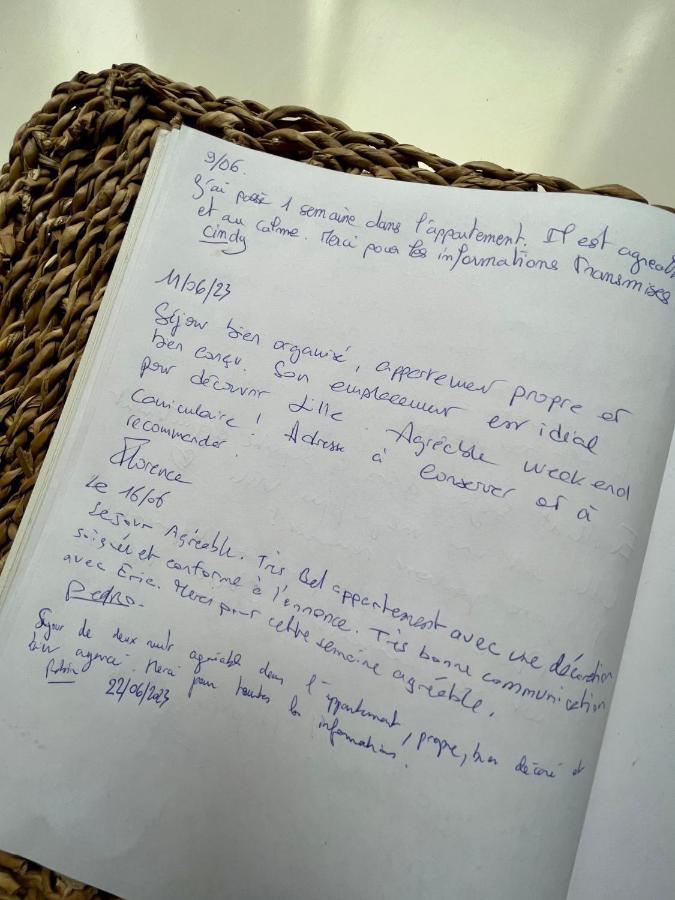 9/06.
J'ai passé 1 semaine dans l'appartement. Il est agréable
et au calme. Merci pour les informations transmises
Cindy
11/06/23
Séjour bien organisé, appartement propre et
bien conçu. Son emplacement est idéal
pour découvrir Lille. Agréable week-end
caniculaire ! Adresse à conserver et à
recommander.
Florence
Le 16/06
Séjour Agréable. Très Bel appartement avec une décoration
soignée et conforme à l'annonce. Très bonne communication
avec Eric. Merci pour cette semaine agréable.
Pedro.
Séjour de deux nuits agréable dans l'appartement, propre, bien décoré et
bien agencé. Merci pour toutes les informations.
Robin
22/06/2023